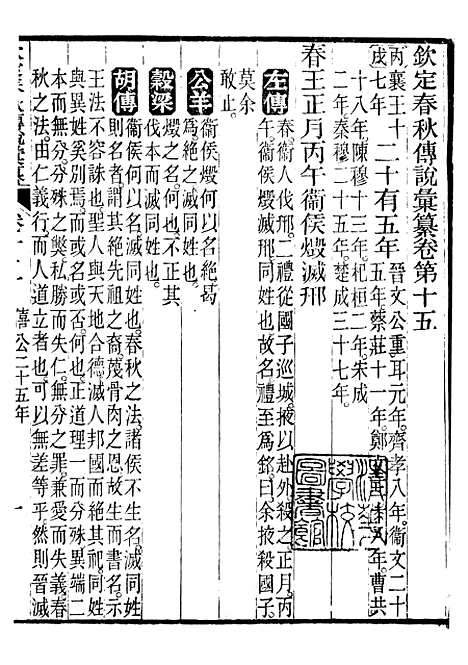 欽定春秋傳說彙纂卷第十五
丙戌
襄王十七年
二十有五年
晉文公重耳元年齊孝八年衞文二十五年蔡莊十一年鄭
八年曹共十八年陳穆十三年杞桓二年宋成二年秦穆二十五年楚成三十七年
春王正月丙午衞侯燬滅邢
左傳
春衞人伐邢二禮從國子巡城掖以赴外殺之正月丙
午衞侯燬滅邢同姓也故名禮至爲銘曰余掖殺國子
莫余
敢止
公羊
衞侯燬何以名絕曷
爲絕之滅同姓也
穀梁
燬之名何也不正其
伐本而滅同姓也
胡傳
衞侯何以名滅同姓也春秋之法諸侯不生名滅同姓
則名者謂其絕先祖之裔蔑骨肉之恩故生而書名示
王法不容誅也聖人與天地合德滅人邦國而絕其祀同姓
與異姓奚別焉而或名或否何也正道理一而分殊異端二
本而無分分殊之獘私勝而失仁無分之罪兼愛而失義春
秋之法由仁義行而人道立者也可以無差等乎然則晉滅
卷十五
僖公二十五年
一
學校
圖書館